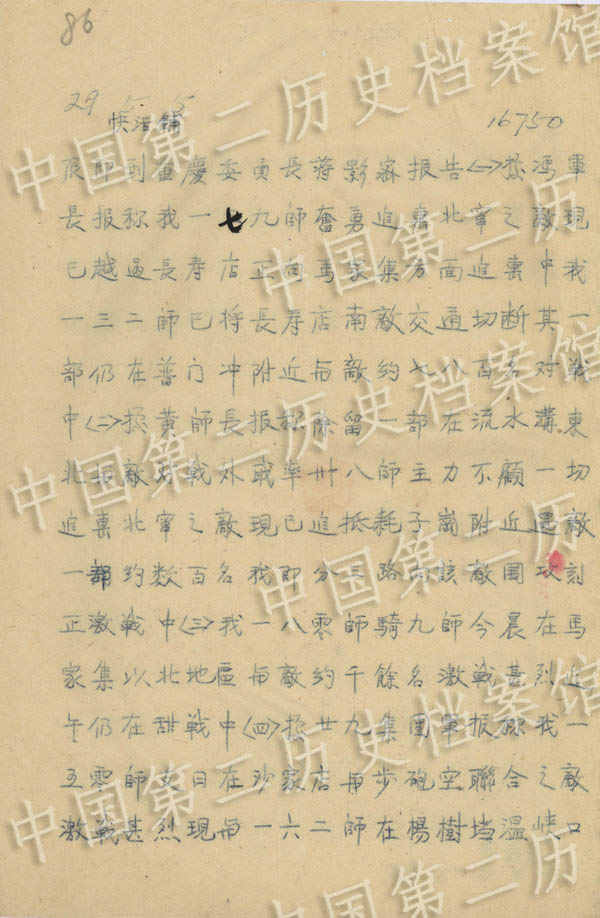 86
29 5 5
快活鋪
16750
限即到重慶委員長蔣影寀报告㈠據馮軍
長报称我一七九師奮勇追襲北竄之敵現
已越過長寿店正向馬家集方面追襲中我
一三二師已将長寿店南敵交通切断其一
部仍在普门冲附近与敵約七八百名对戰
中㈡據黄師長报称除留一部在流水溝東
北报敵对戰外或率卅八師主力不顧一切
追襲北竄之敵現已追抵耗子崗附近遇敵
一部約数百名我即分三路向該敵圍攻刻
正激戰中㈢我一八零師騎九師今晨在馬
家集以北地區与敵約千餘名激戰甚烈近
午仍在甜戰中㈣據廿九集團軍报称我一
五零師支日在沙家店与步砲空聯合之敵
激戰甚烈現与一六二師在楊樹垱温峡口
中国第二历史档案馆